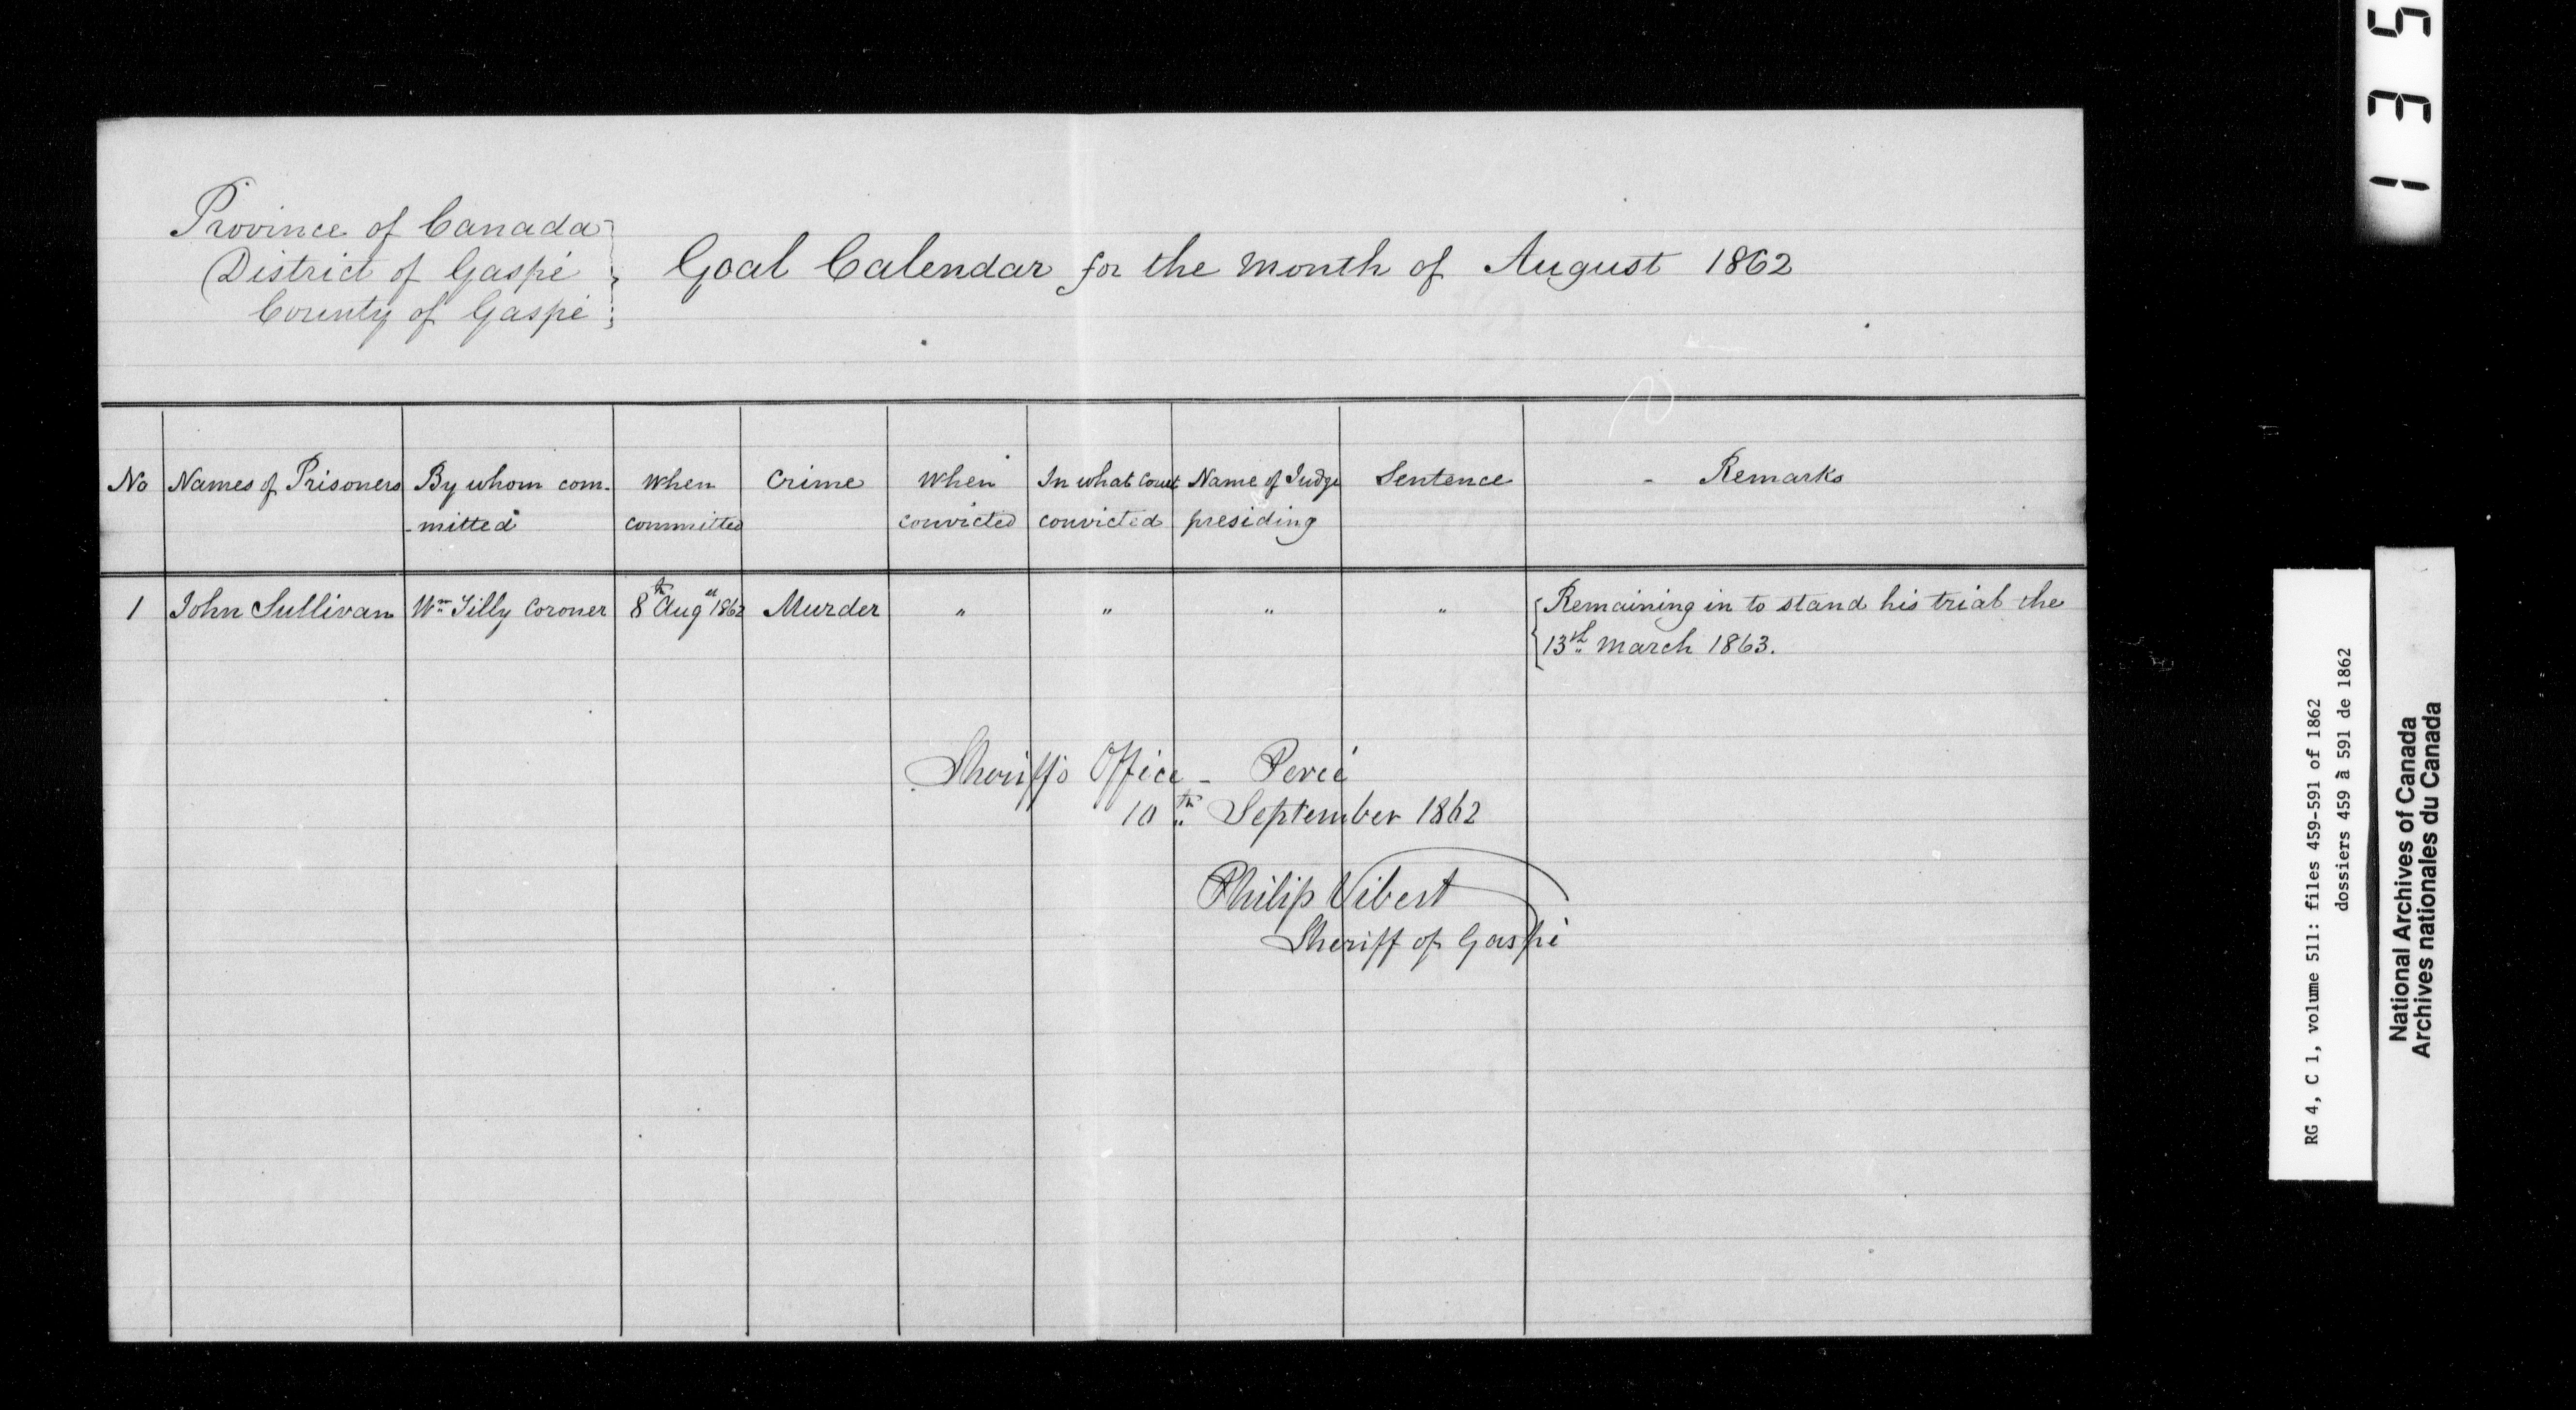 Province of Canada
District of Gaspé
County of Gaspé
Goal Calendar for the month of August 1862
No | Names of Prisoners | By whom com- | When | Crime | When | In what Court | Name of Judge | Sentence | - Remarks
-mitted | committed | convicted | convicted | presiding
1 | John Sullivan | Wm Tilly Coroner | 8th Augst 1862 | Murder | " | " | " | " | Remaining in to stand his trial the
13th March 1863.
Sheriff's Office - Percé
10th September 1862
Philip Vibert
Sheriff of Gaspé
135
RG 4, C 1, volume 511: files 459-591 of 1862
dossiers 459 à 591 de 1862
National Archives of Canada
Archives nationales du Canada